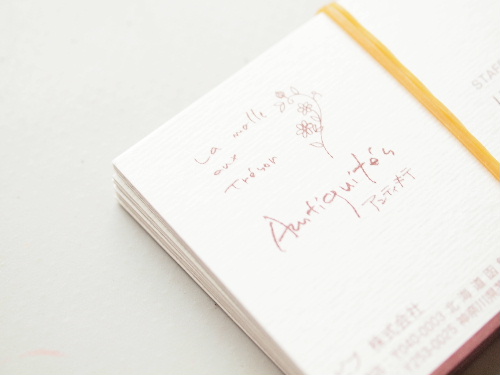 La malle
aux
Trésor
Antiquités
アンティカテ
STAF
株式会社
〒540-0003 北海道
〒253-0025 神奈川県